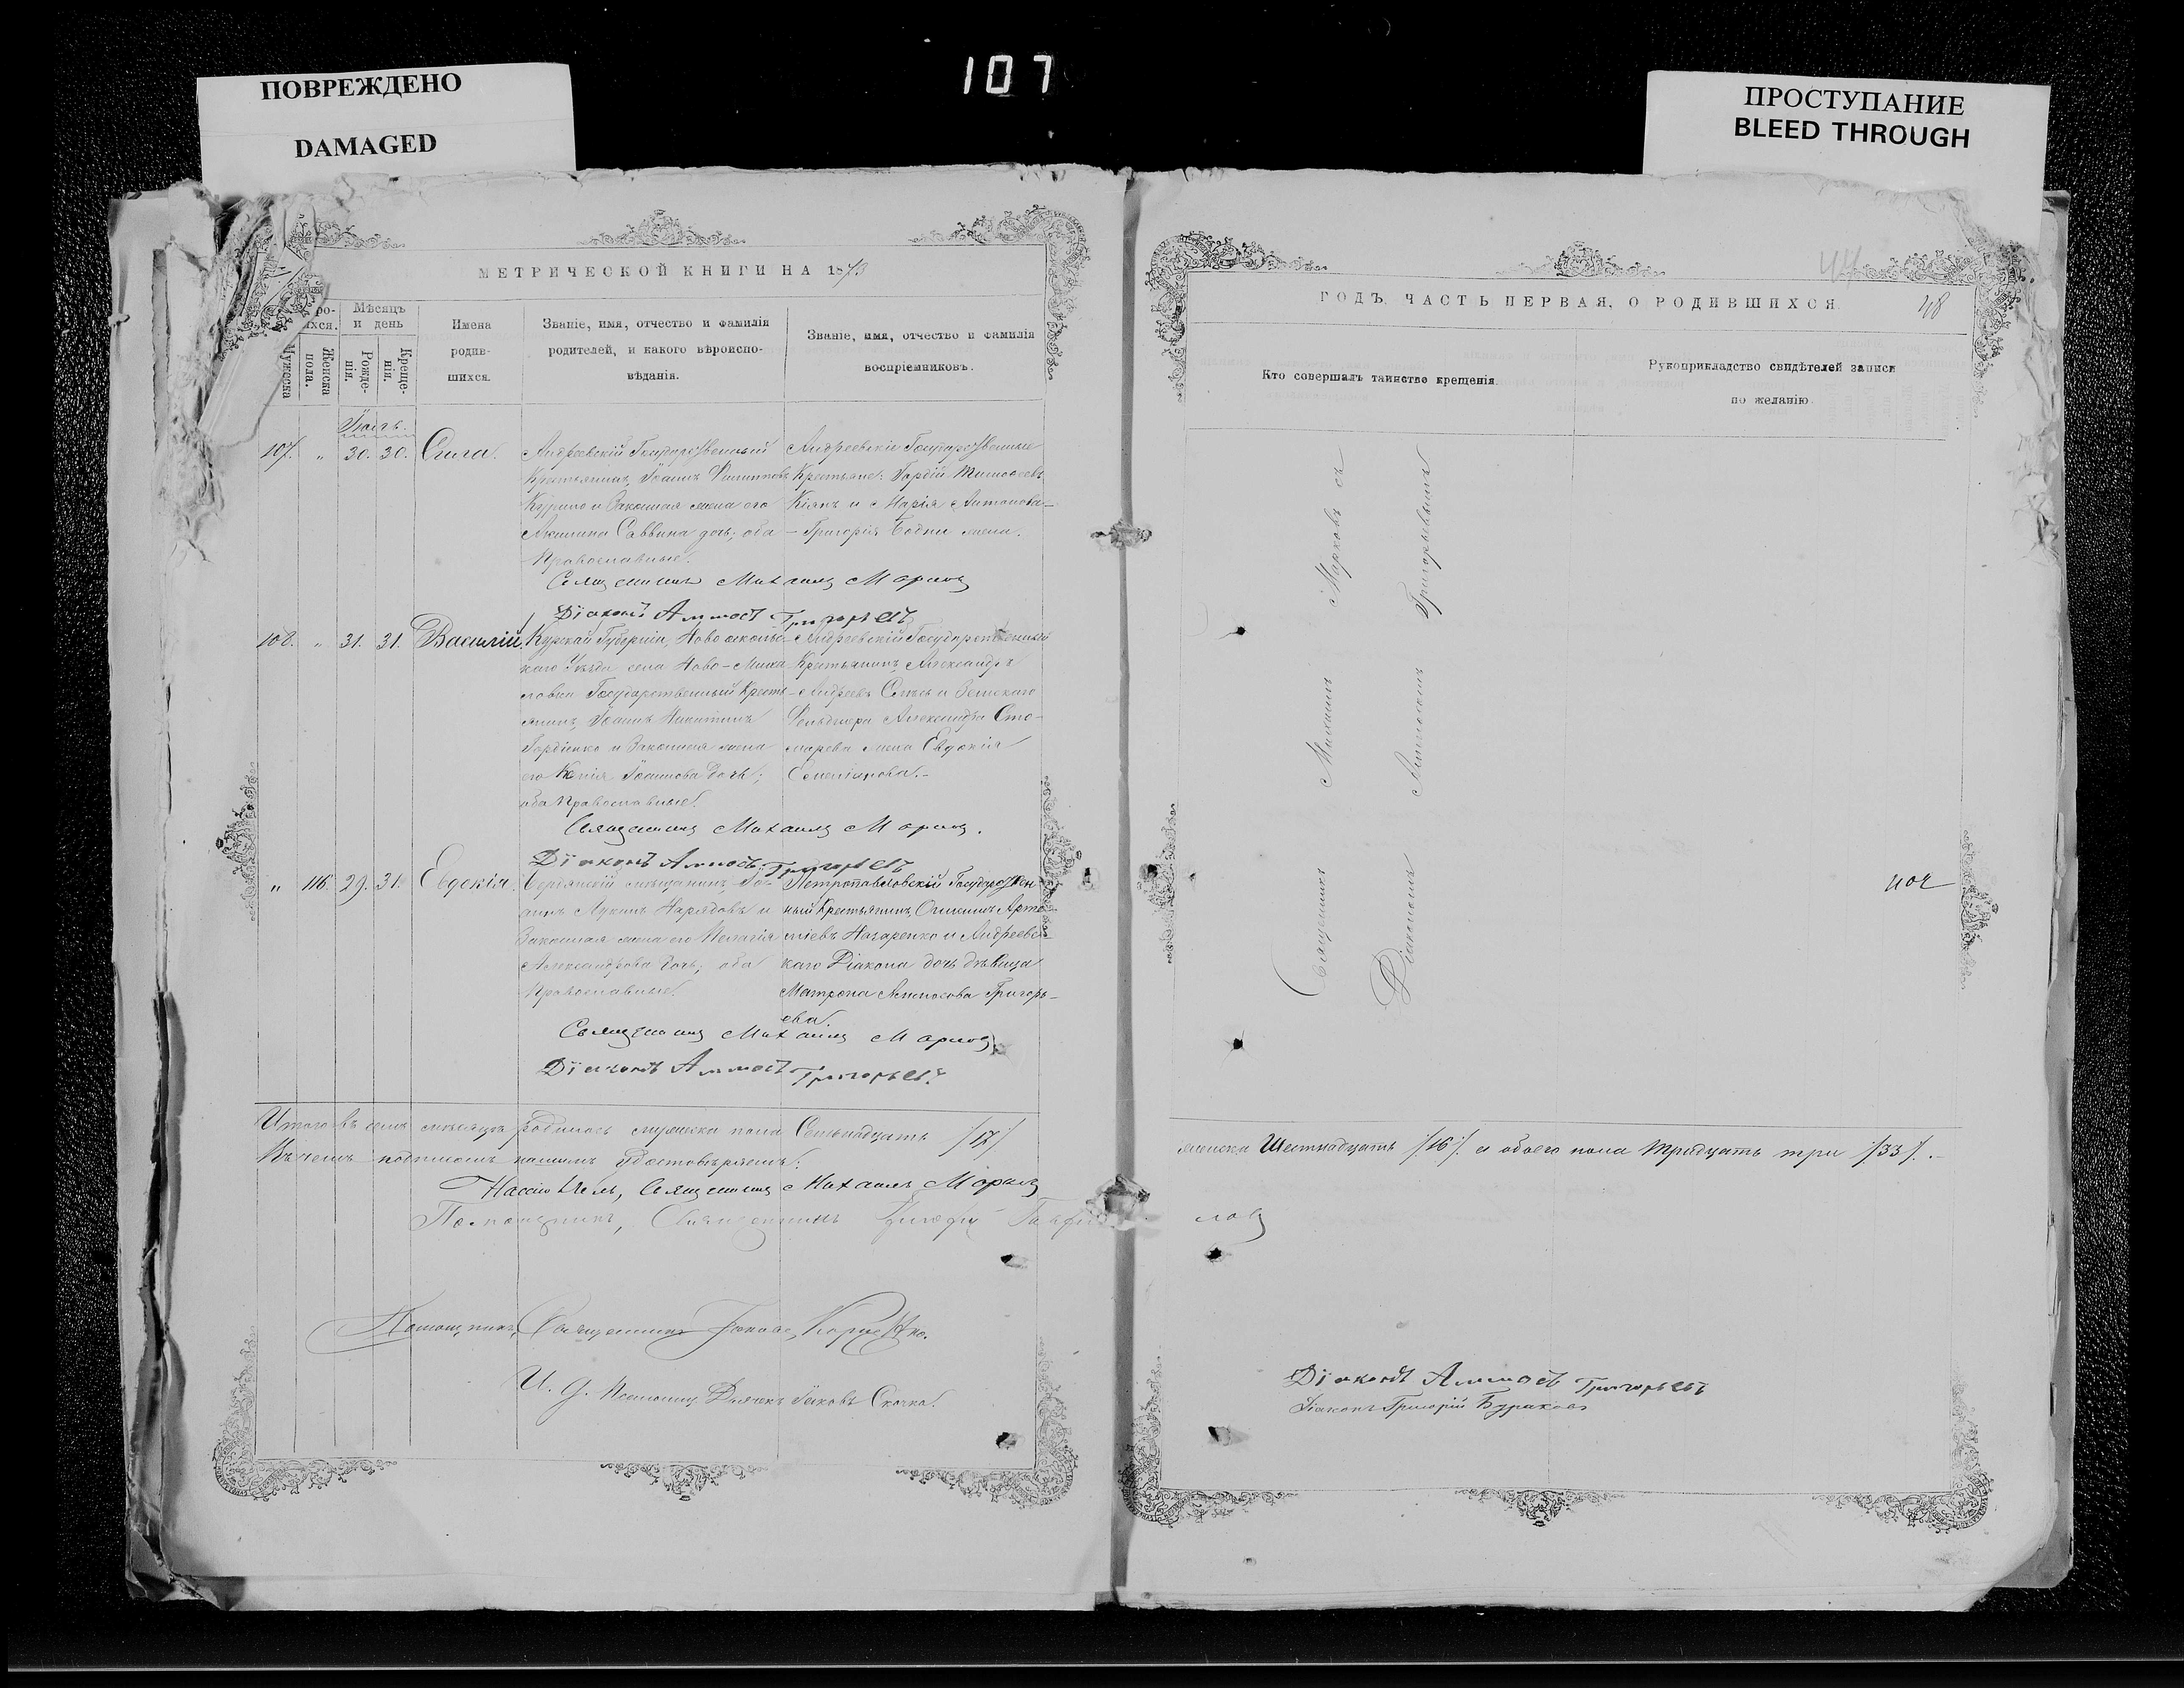 107
ПОВРЕЖДЕНО
DAMAGED
ПРОСТУПАНИЕ
BLEED THROUGH
МЕТРИЧЕСКОЙ КНИГИ НА 1873
Мѣсяцъ и день
Мужеска
Женска пола.
Рожденія.
Крещенія.
Имена родившихся.
Званіе, имя, отчество и фамилія родителей, и какого вѣроисповѣданія.
Званіе, имя, отчество и фамилія воспріемниковъ.
107. " 30. 30. Сила.
Андреевскій Государственный
Крестьянинъ, Іоаннъ Филипповъ
и Законная жена его
Акилина Саввина дочь; оба
Православные.
Андреевскіе Государственные
Крестьяне: Гордій Тимоѳеевъ
Кіянъ и Марія Антонова
Григорія Бодни жена.
Священникъ Михаилъ Марковъ
Діаконъ Аммосъ Григорьевъ
108. " 31. 31. Василій.
Курской Губерніи, Новооскольс-
каго Уѣзда села Ново-
Государственный Кресть-
янинъ, Іоаннъ Никитинъ
Гордіенко и Законная жена
его Ксенія Іоаннова дочь;
оба Православные.
Андреевскій Государственный
Крестьянинъ Александръ
Андреевъ и Земскаго
Фельдшера Александра Сто-
жена Евдокія
Священникъ Михаилъ Марковъ.
Діаконъ Аммосъ Григорьевъ
" 116. 29. 31. Евдокія.
Бердянскій мѣщанинъ, Іо-
аннъ Лукинъ Нарядовъ и
Законная жена его Пелагія
Александрова дочь; оба
Православные.
Петропавловскій Государствен-
ный Крестьянинъ, Онисимъ Арте-
міевъ Назаренко и Андреевс-
каго Діакона дочь дѣвица
Матрона Аммосова Григорь-
ева.
Священникъ Михаилъ Марковъ
Діаконъ Аммосъ Григорьевъ
Итого въ семъ мѣсяцѣ родилось мужеска пола Семнадцать /17/
Въ чемъ подписомъ нашимъ удостовѣряемъ:
Священникъ Михаилъ Марковъ
Помощникъ, Священникъ
Помощникъ, Священникъ
И. д. Псаломщ. Дьячекъ Іаковъ Скочко.
ГОДЪ, ЧАСТЬ ПЕРВАЯ, О РОДИВШИХСЯ.
44
48
Кто совершалъ таинство крещенія.
Рукоприкладство свидѣтелей записи по желанію.
Священникъ Михаилъ Марковъ съ
Діакономъ Аммосомъ Григорьевымъ
женска Шестнадцать /16/. а обоего пола тридцать три /33/.
Діаконъ Аммосъ Григорьевъ
Діаконъ Григорій Бураковъ